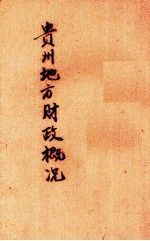 貴州地方財政概况